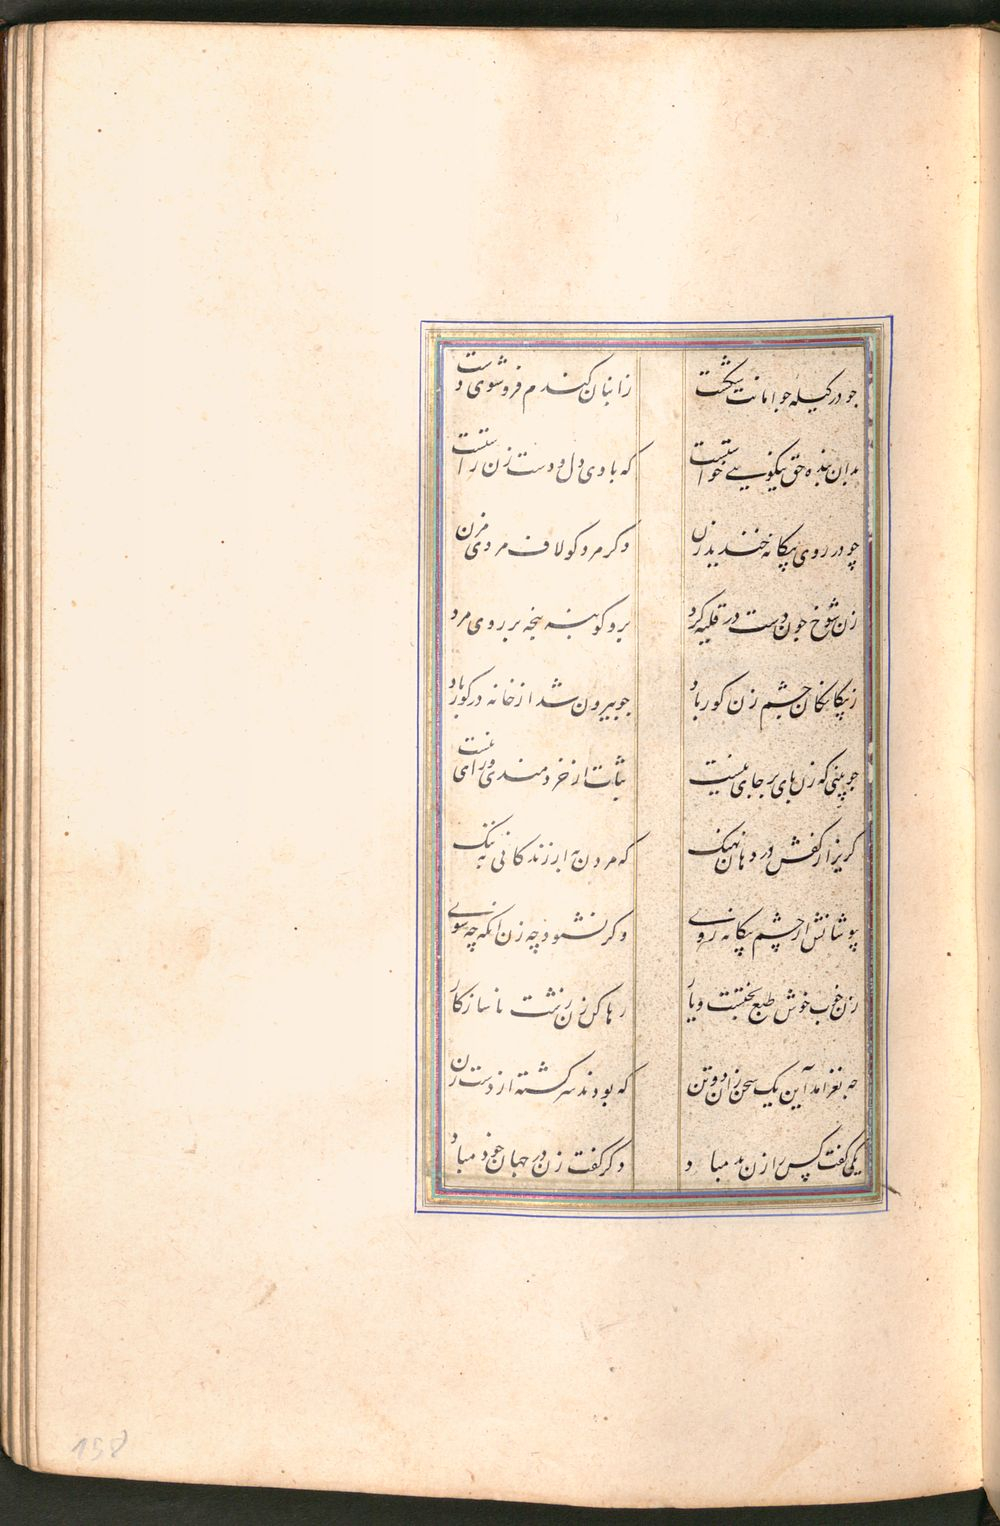 جو در کیله جو امانت شکست	ز انبان کندم فرو شوی دست
بدان بنده حق نیکویی خواستست	که با وی دل و دست زن راستست
چو در روی بیکانه خندید زن	دکر مرد کو لاف مردی مزن
زن شوخ جون دست در قلیه کرد	برو کو بنه پنجه بر روی مرد
ز بیکانکان جشم زن کور باد	جو بیرون شد از خانه در کور باد
جو بینی که زن بای بر جای نیست	ثبات از خردمندی و رای نیست
کریز از کفش در دهان نهنک	که مردن به از زندکانی به ننک
بپوشانش از چشم بیکانه روی	وکر نشنود چه زن انکه چه شوی
زن خوب خوش طبع بختست و یار	رها کن زن زشت ناسازکار
جه نغز امد آین یک سخن زان دو تن	که بودند سرکشته از دست زن
یکی کفت کس را زن بد مباد	دکر کفت زن در جهان خود مباد
158